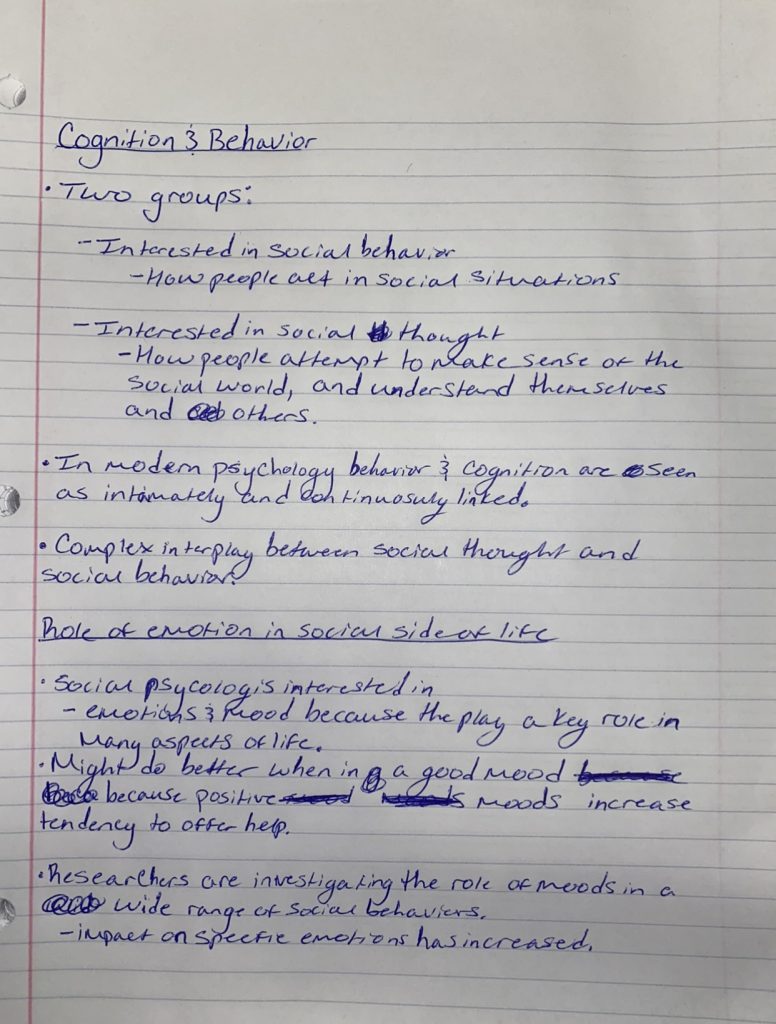 Cognition & Behavior
• Two groups:
- Interested in social behavior
- How people act in social situations
- Interested in social thought
- How people attempt to make sense of the
social world, and understand themselves
and others.
• In modern psychology behavior & cognition are seen
as intimately and continuosuly linked.
• Complex interplay between social thought and
social behavior.
Role of emotion in social side of life
• Social psycologis interested in
- emotions & mood because the play a key role in
Many aspects of life.
• Might do better when in a good mood
because positive moods increase
tendency to offer help.
• Researchers are investigating the role of moods in a
wide range of social behaviers.
- impact on specfic emotions has increased.